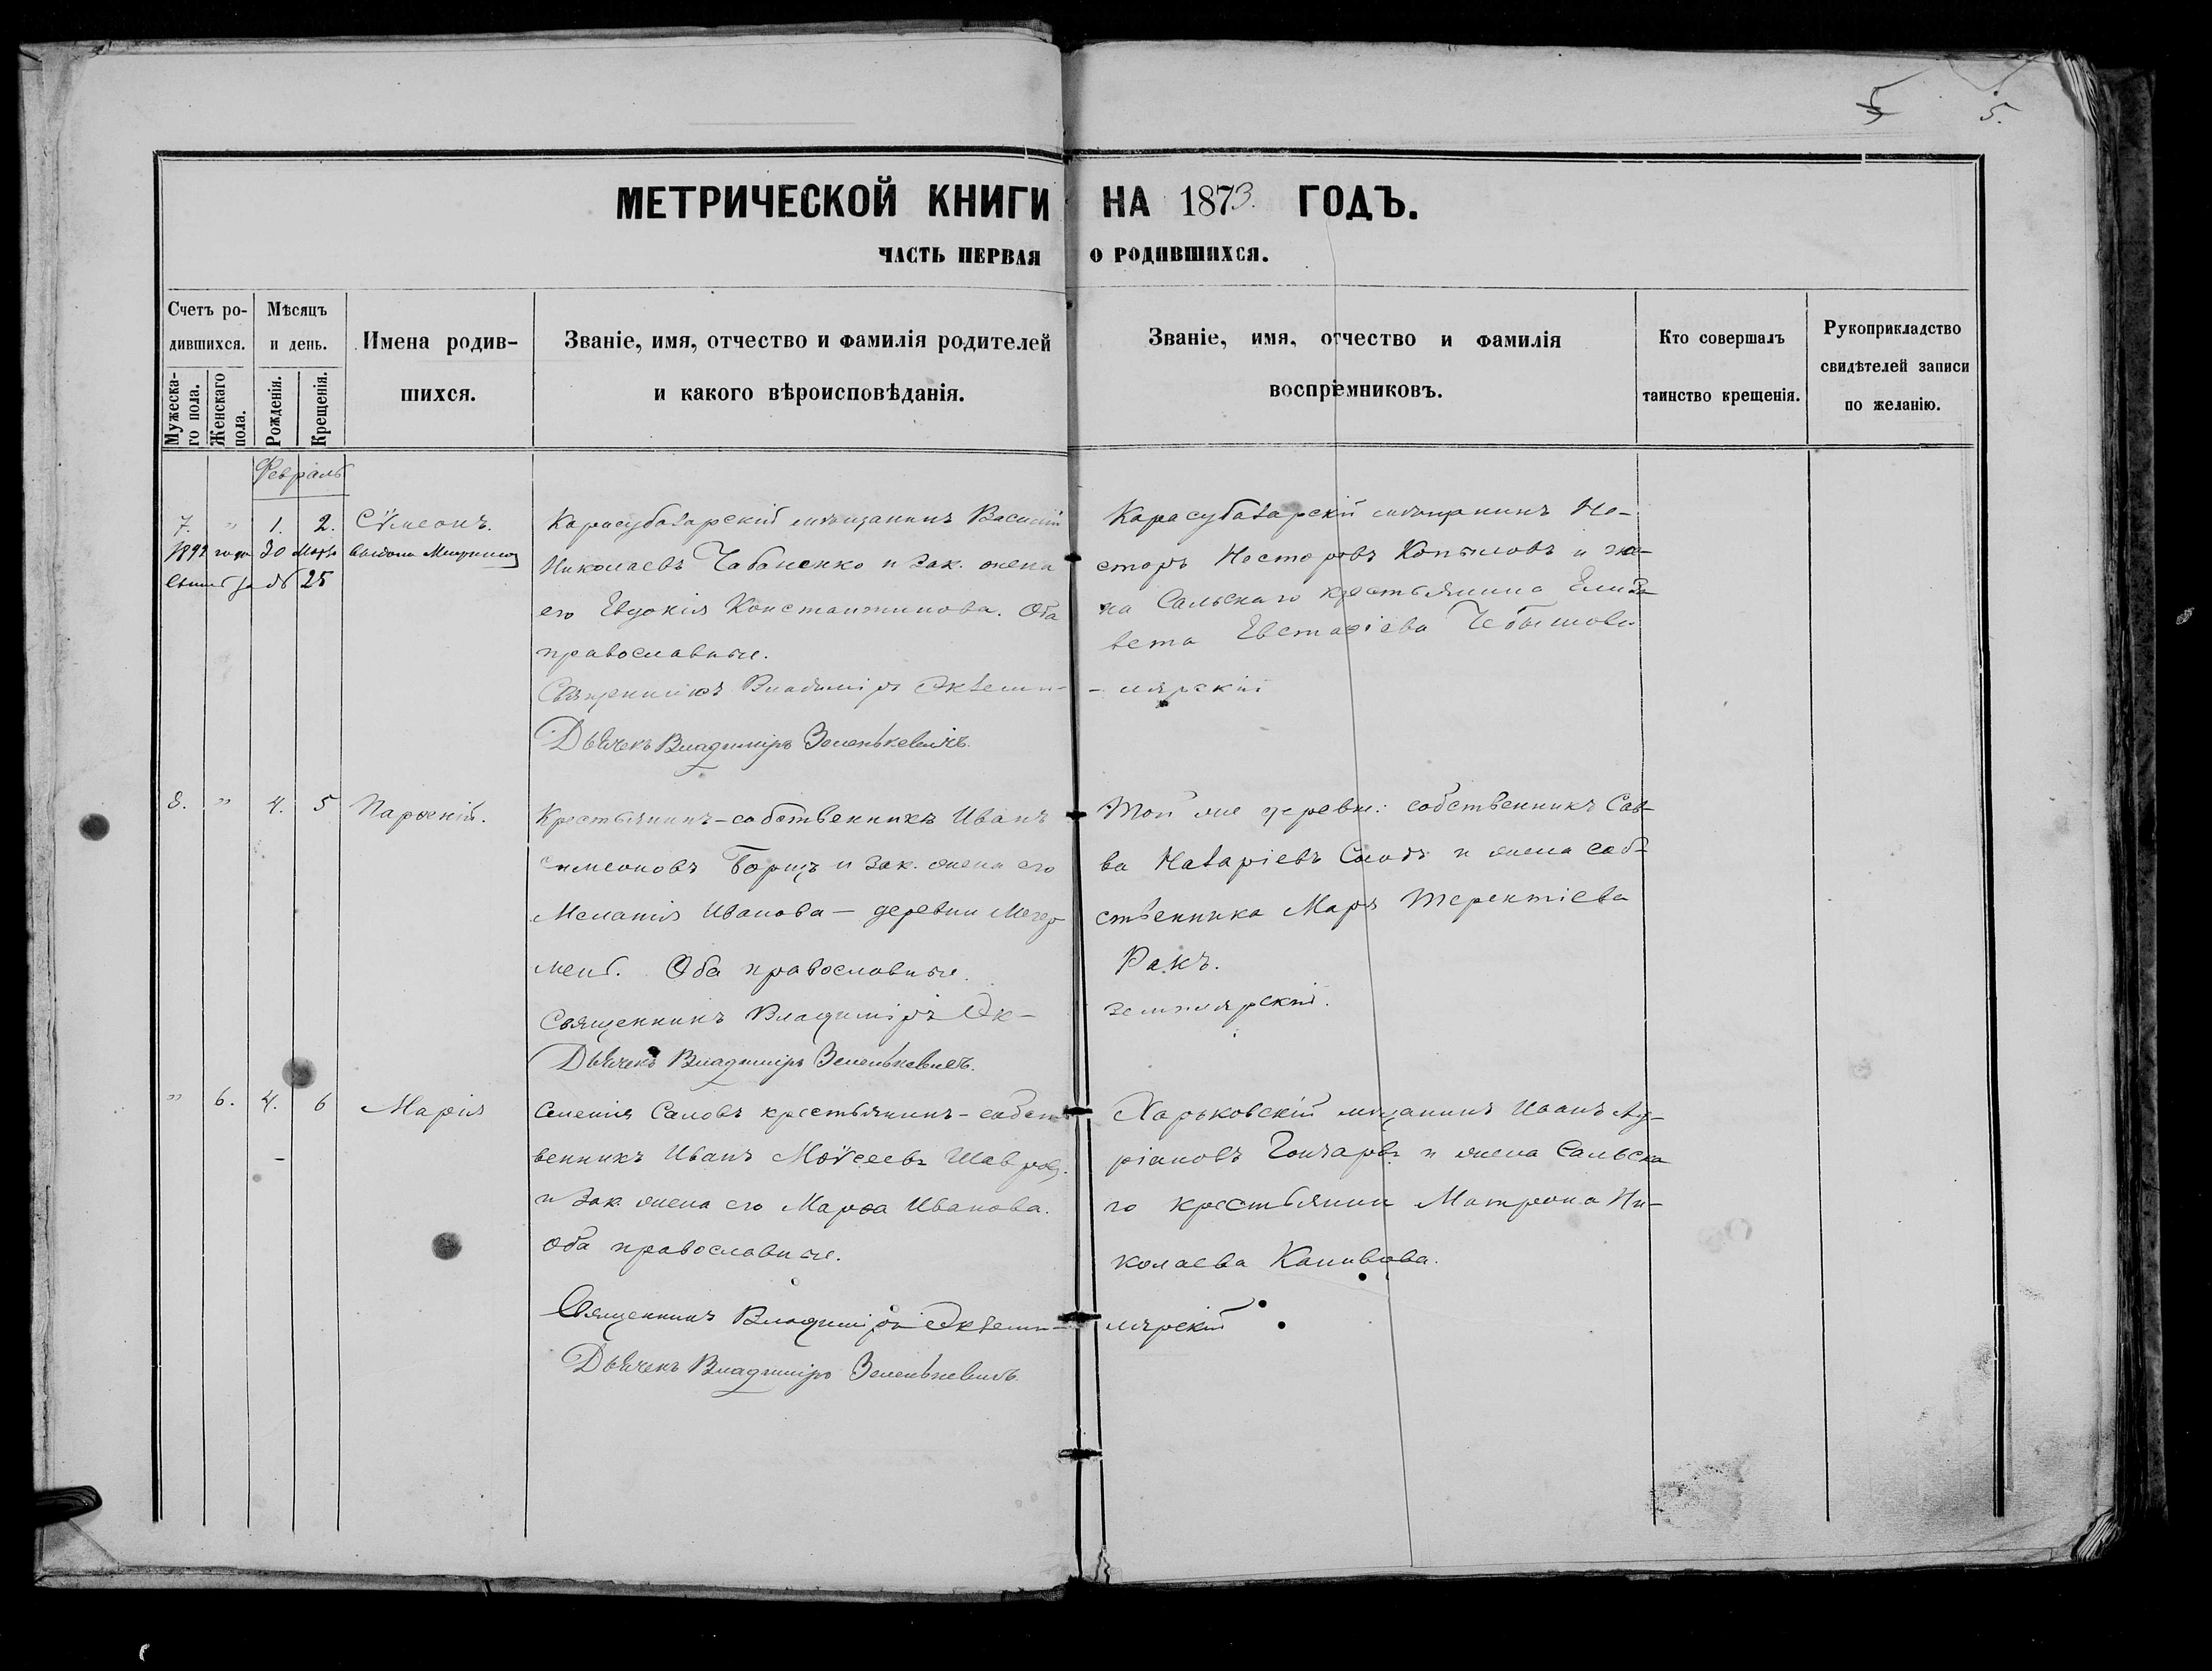 5 5.
МЕТРИЧЕСКОЙ КНИГИ НА 1873 ГОДЪ.
ЧАСТЬ ПЕРВАЯ О РОДИВШИХСЯ.
Счетъ родившихся.
Мужескаго пола.
Женскаго пола.
Мѣсяцъ и день.
Рожденія.
Крещенія.
Имена родив-
шихся.
Званіе, имя, отчество и фамилія родителей
и какого вѣроисповѣданія.
Званіе, имя, отчество и фамилія
воспріемниковъ.
Кто совершалъ
таинство крещенія.
Рукоприкладство
свидѣтелей записи
по желанію.
Февраль
7. " 1. 2. Сѵмеонъ.
1892 года 30 Марта
за № 25
Карасубазарскій мѣщанинъ Василій
Николаевъ Чабаненко и зак. жена
его Евдокія Константинова. Оба
православные.
Священникъ Владиміръ Экземп-
Дьячекъ Владиміръ Зеленькевичъ.
Карасубазарскій мѣщанинъ Не-
сторъ Несторовъ Копыловъ и же-
на Сальскаго крестьянина Елиза-
вета Евстафіева
-лярскій
8. " 4. 5 Парѳеній.
Крестьянинъ-собственникъ Иванъ
Симеоновъ Борщъ и зак. жена его
Меланія Иванова — деревни
Оба православные.
Священникъ Владиміръ Эк-
Дьячекъ Владиміръ Зеленькевичъ.
Той же деревни: собственникъ Сав-
ва Назаріевъ и жена соб-
ственника Терентіева
Ракъ.
земплярскій.
" 6. 4. 6 Марія
Селенія Саловъ крестьянинъ-собст-
венникъ Иванъ Моѵсеевъ
и зак. жена его Марѳа Иванова.
Оба православные.
Священникъ Владиміръ Экземп-
Дьячекъ Владиміръ Зеленькевичъ.
Харьковскій мѣщанинъ Иванъ Ад-
ріановъ Гончаровъ и жена Сальска-
го крестьянина Матрона Ни-
колаева
лярскій